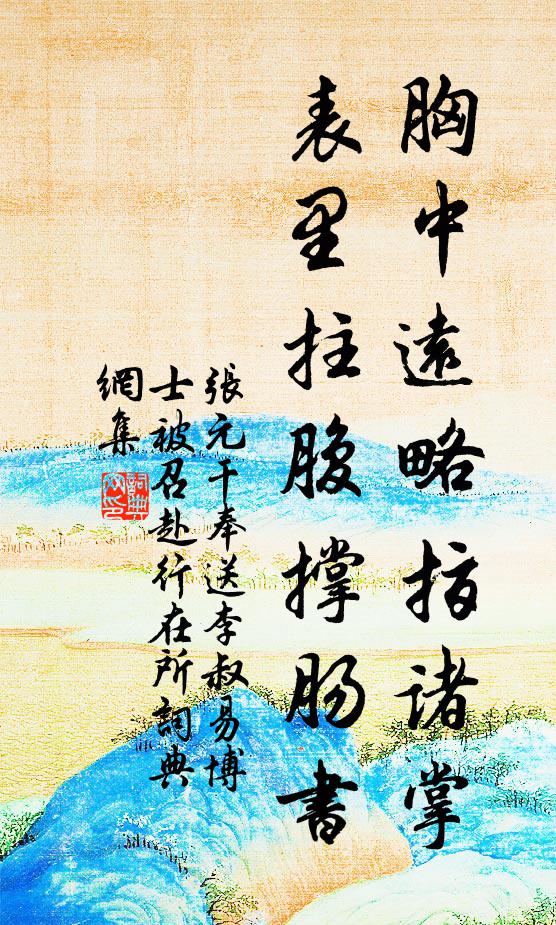 胸中遠略指諸掌
表里拄腹撐腸書
張元干奉送李叔易博
士被召赴行在所詞典
網集
詞典網印